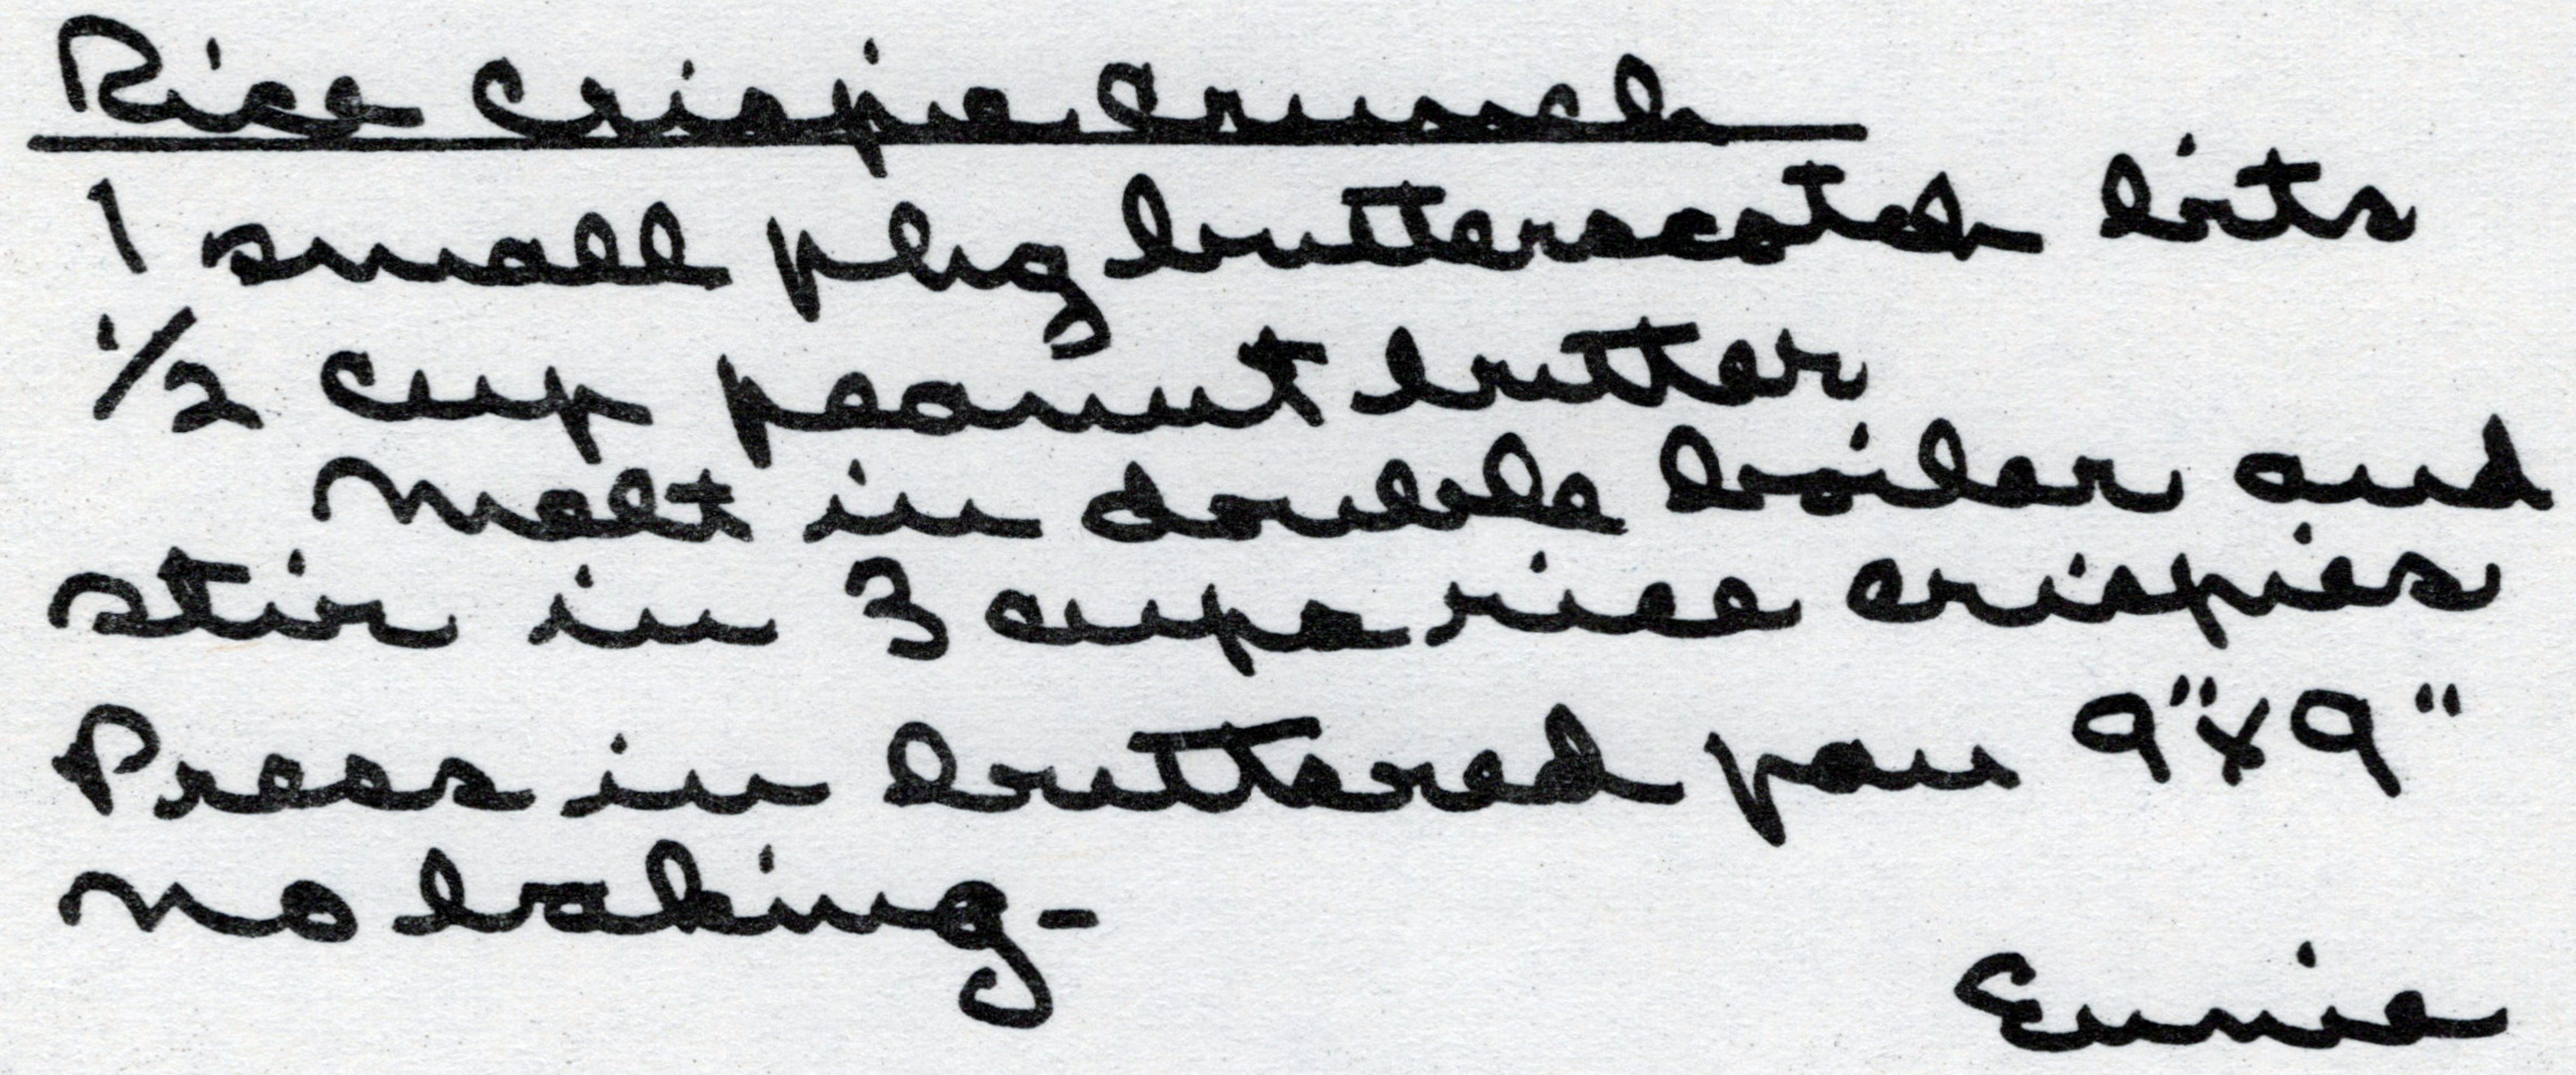 Rice Crispie Crunch
1 small pkg butterscotch bits
1/2 cup peanut butter
Melt in double boiler and
stir in 3 cups rice crispies
Press in buttered pan 9"x9"
no baking-
Eunie